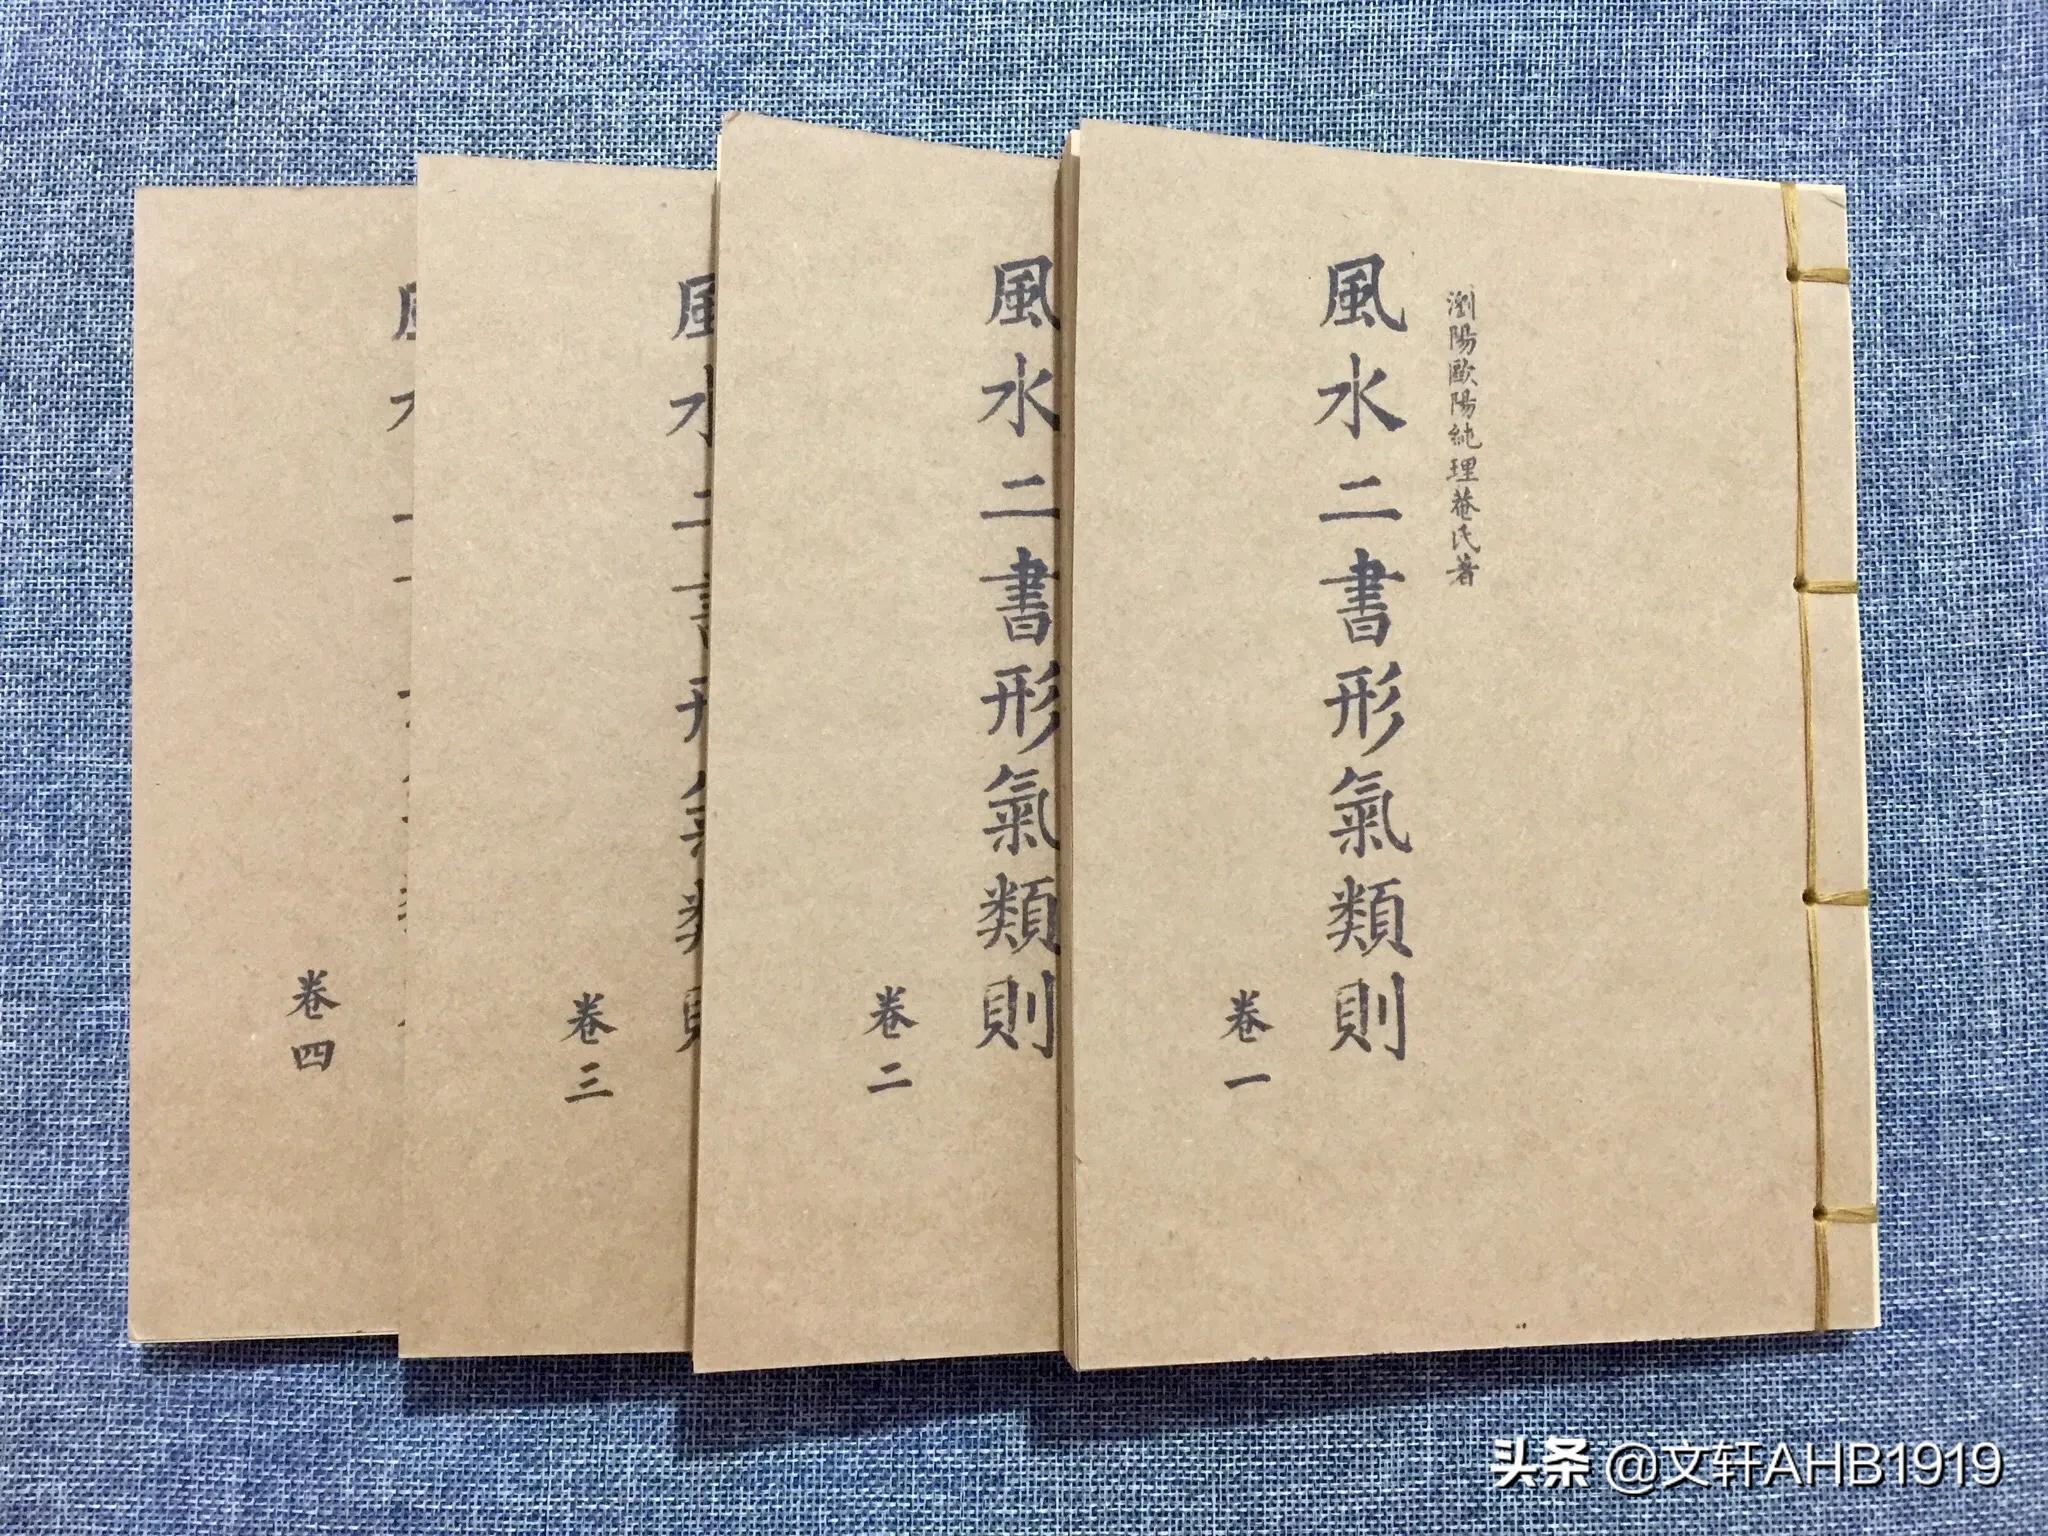 瀏陽歐陽純理菴氏著
風水二書形氣類則
卷一
風水二書形氣類則
卷二
風水二書形氣類則
卷三
卷四
头条 @文轩AHB1919